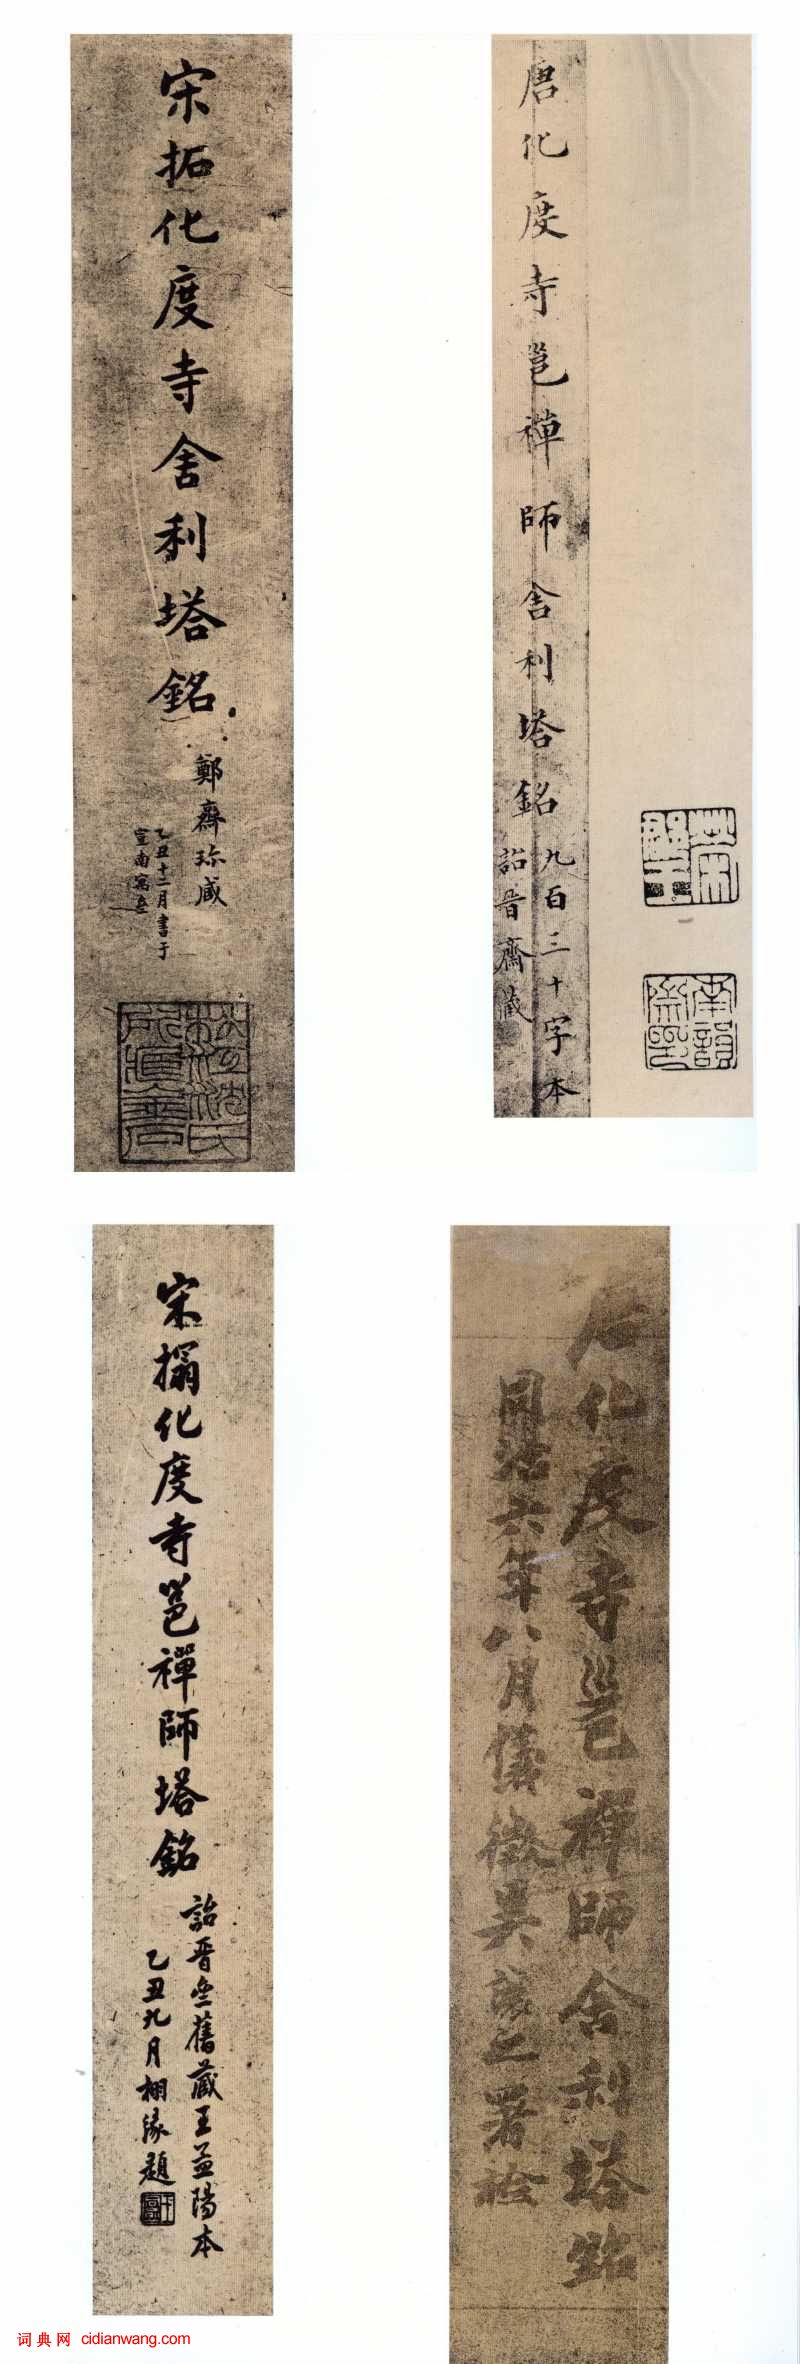 唐化度寺邕禪師舍利塔銘
九百三十字本
詒晉齋藏
宋拓化度寺舍利塔銘
鄭齋珎藏
乙丑十二月書于
宣南寓
松江沈氏
宋搨化度寺邕禪師塔銘
詒晉齋舊藏王孟陽本
乙丑九月栩緣題
化度寺邕禪師舍利塔銘
同治六年八月儀徵吳讓之署檢
词典网 cidianwang.com